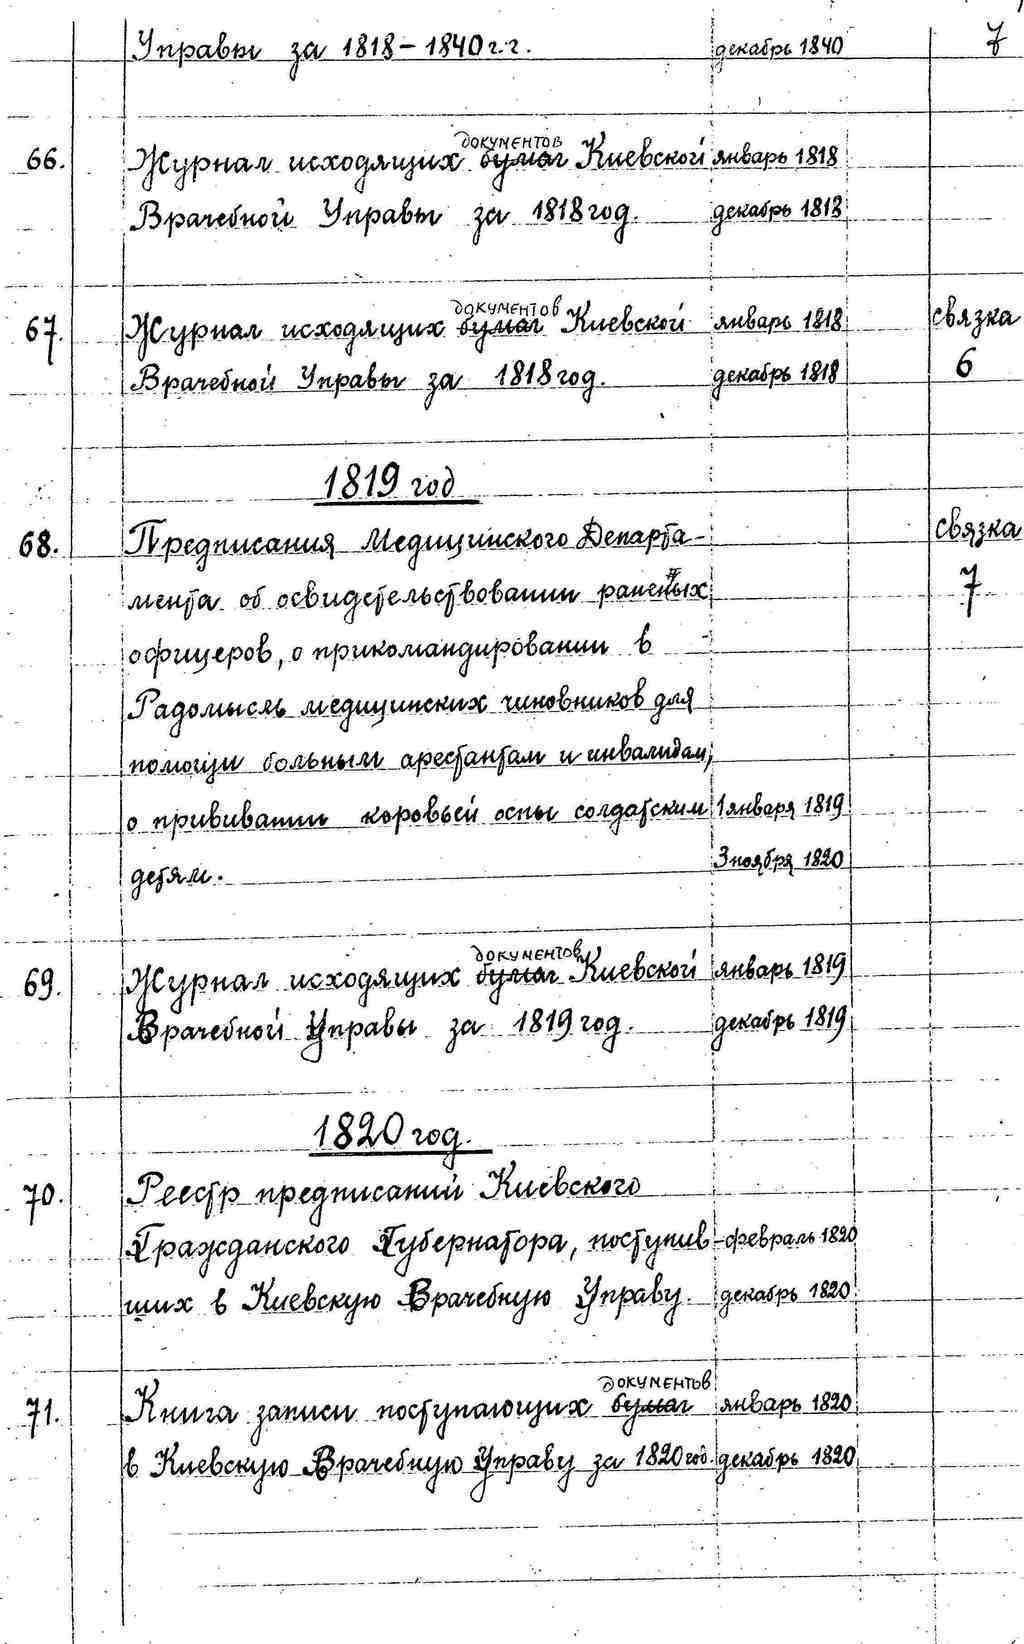 Управы за 1818-1840 г.г. декабрь 1840 7
66. Журнал исходящих документов бумаг Киевской январь 1818
Врачебной Управы за 1818 год. декабрь 1818
67. Журнал исходящих документов бумаг Киевской январь 1818 связка
Врачебной Управы за 1818 год. декабрь 1818 6
1819 год
68. Предписания Медицинского Департа- связка
мента об освидетельствовании раненых 7
офицеров, о прикомандировании в
Радомысль медицинских чиновников для
помощи больным арестантам и инвалидам,
о прививании коровьей оспы солдатским 1 января 1819
детям. 3 ноября 1820
69. Журнал исходящих документов бумаг Киевской январь 1819
Врачебной Управы за 1819 год. декабрь 1819
1820 год.
70. Реестр предписаний Киевского
Гражданского Губернатора, поступив- февраль 1820
ших в Киевскую Врачебную Управу. декабрь 1820
71. Книга записи поступающих документов бумаг январь 1820
в Киевскую Врачебную Управу за 1820 год. декабрь 1820